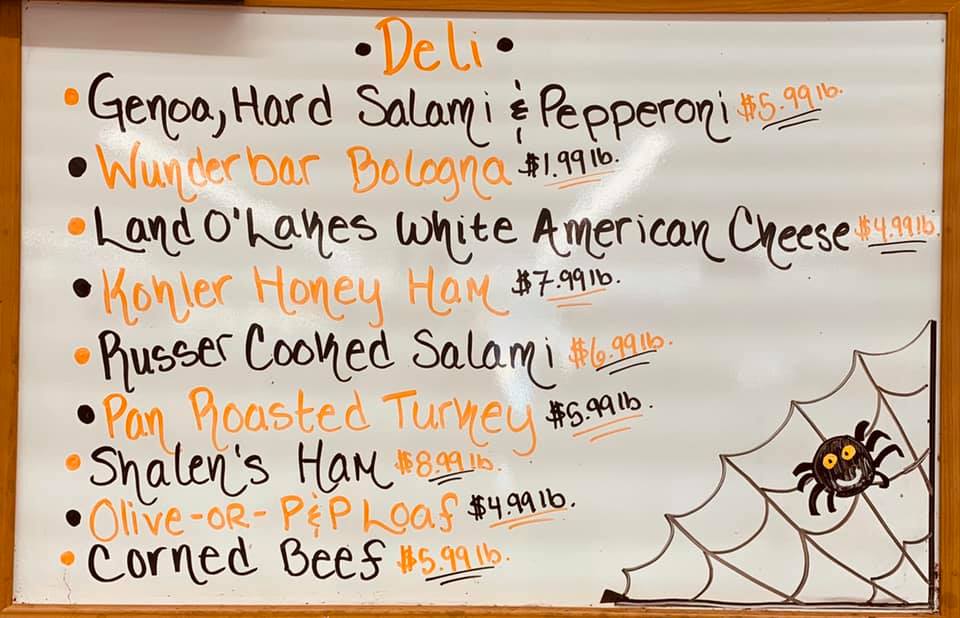 • Deli •
• Genoa, Hard Salami & Pepperoni $5.99 lb.
• Wunderbar Bologna $1.99 lb.
• Land O'Lakes White American Cheese $4.99 lb.
• Kohler Honey Ham $7.99 lb.
• Russer Cooked Salami $6.99 lb.
• Pan Roasted Turkey $5.99 lb.
• Shalen's Ham $8.99 lb.
• Olive-OR-P&P Loaf $4.99 lb.
• Corned Beef $5.99 lb.